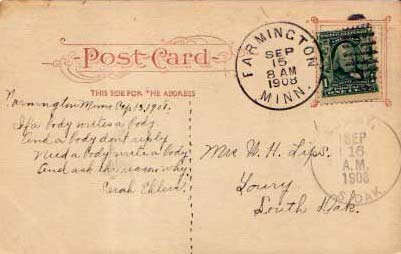 Post-Card
THIS SIDE FOR THE ADDRESS
FARMINGTON
SEP
15
8 AM
1908
MINN.
Farmington Minn Sep. 13, 1908.
If a body writes a body
And a body don't reply
Need a body write a body
And ask the reason why.
Sarah Ehlers.
Mrs. W. H. Lips.
Loury
South Dak.
SEP
16
A.M.
1908
S. DAK.